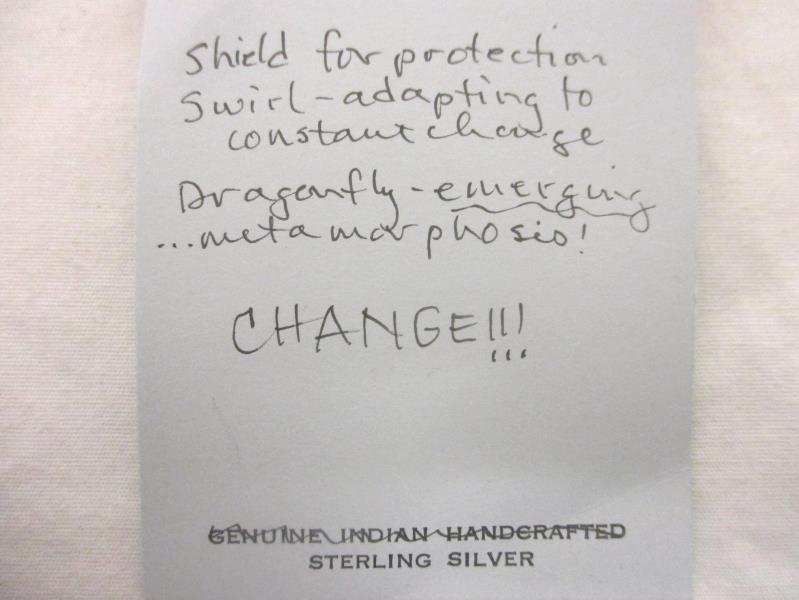 Shield for protection
Swirl - adapting to
constant change
Dragonfly - emerging
...metamorphosis!
CHANGE!!!
GENUINE INDIAN HANDCRAFTED
STERLING SILVER